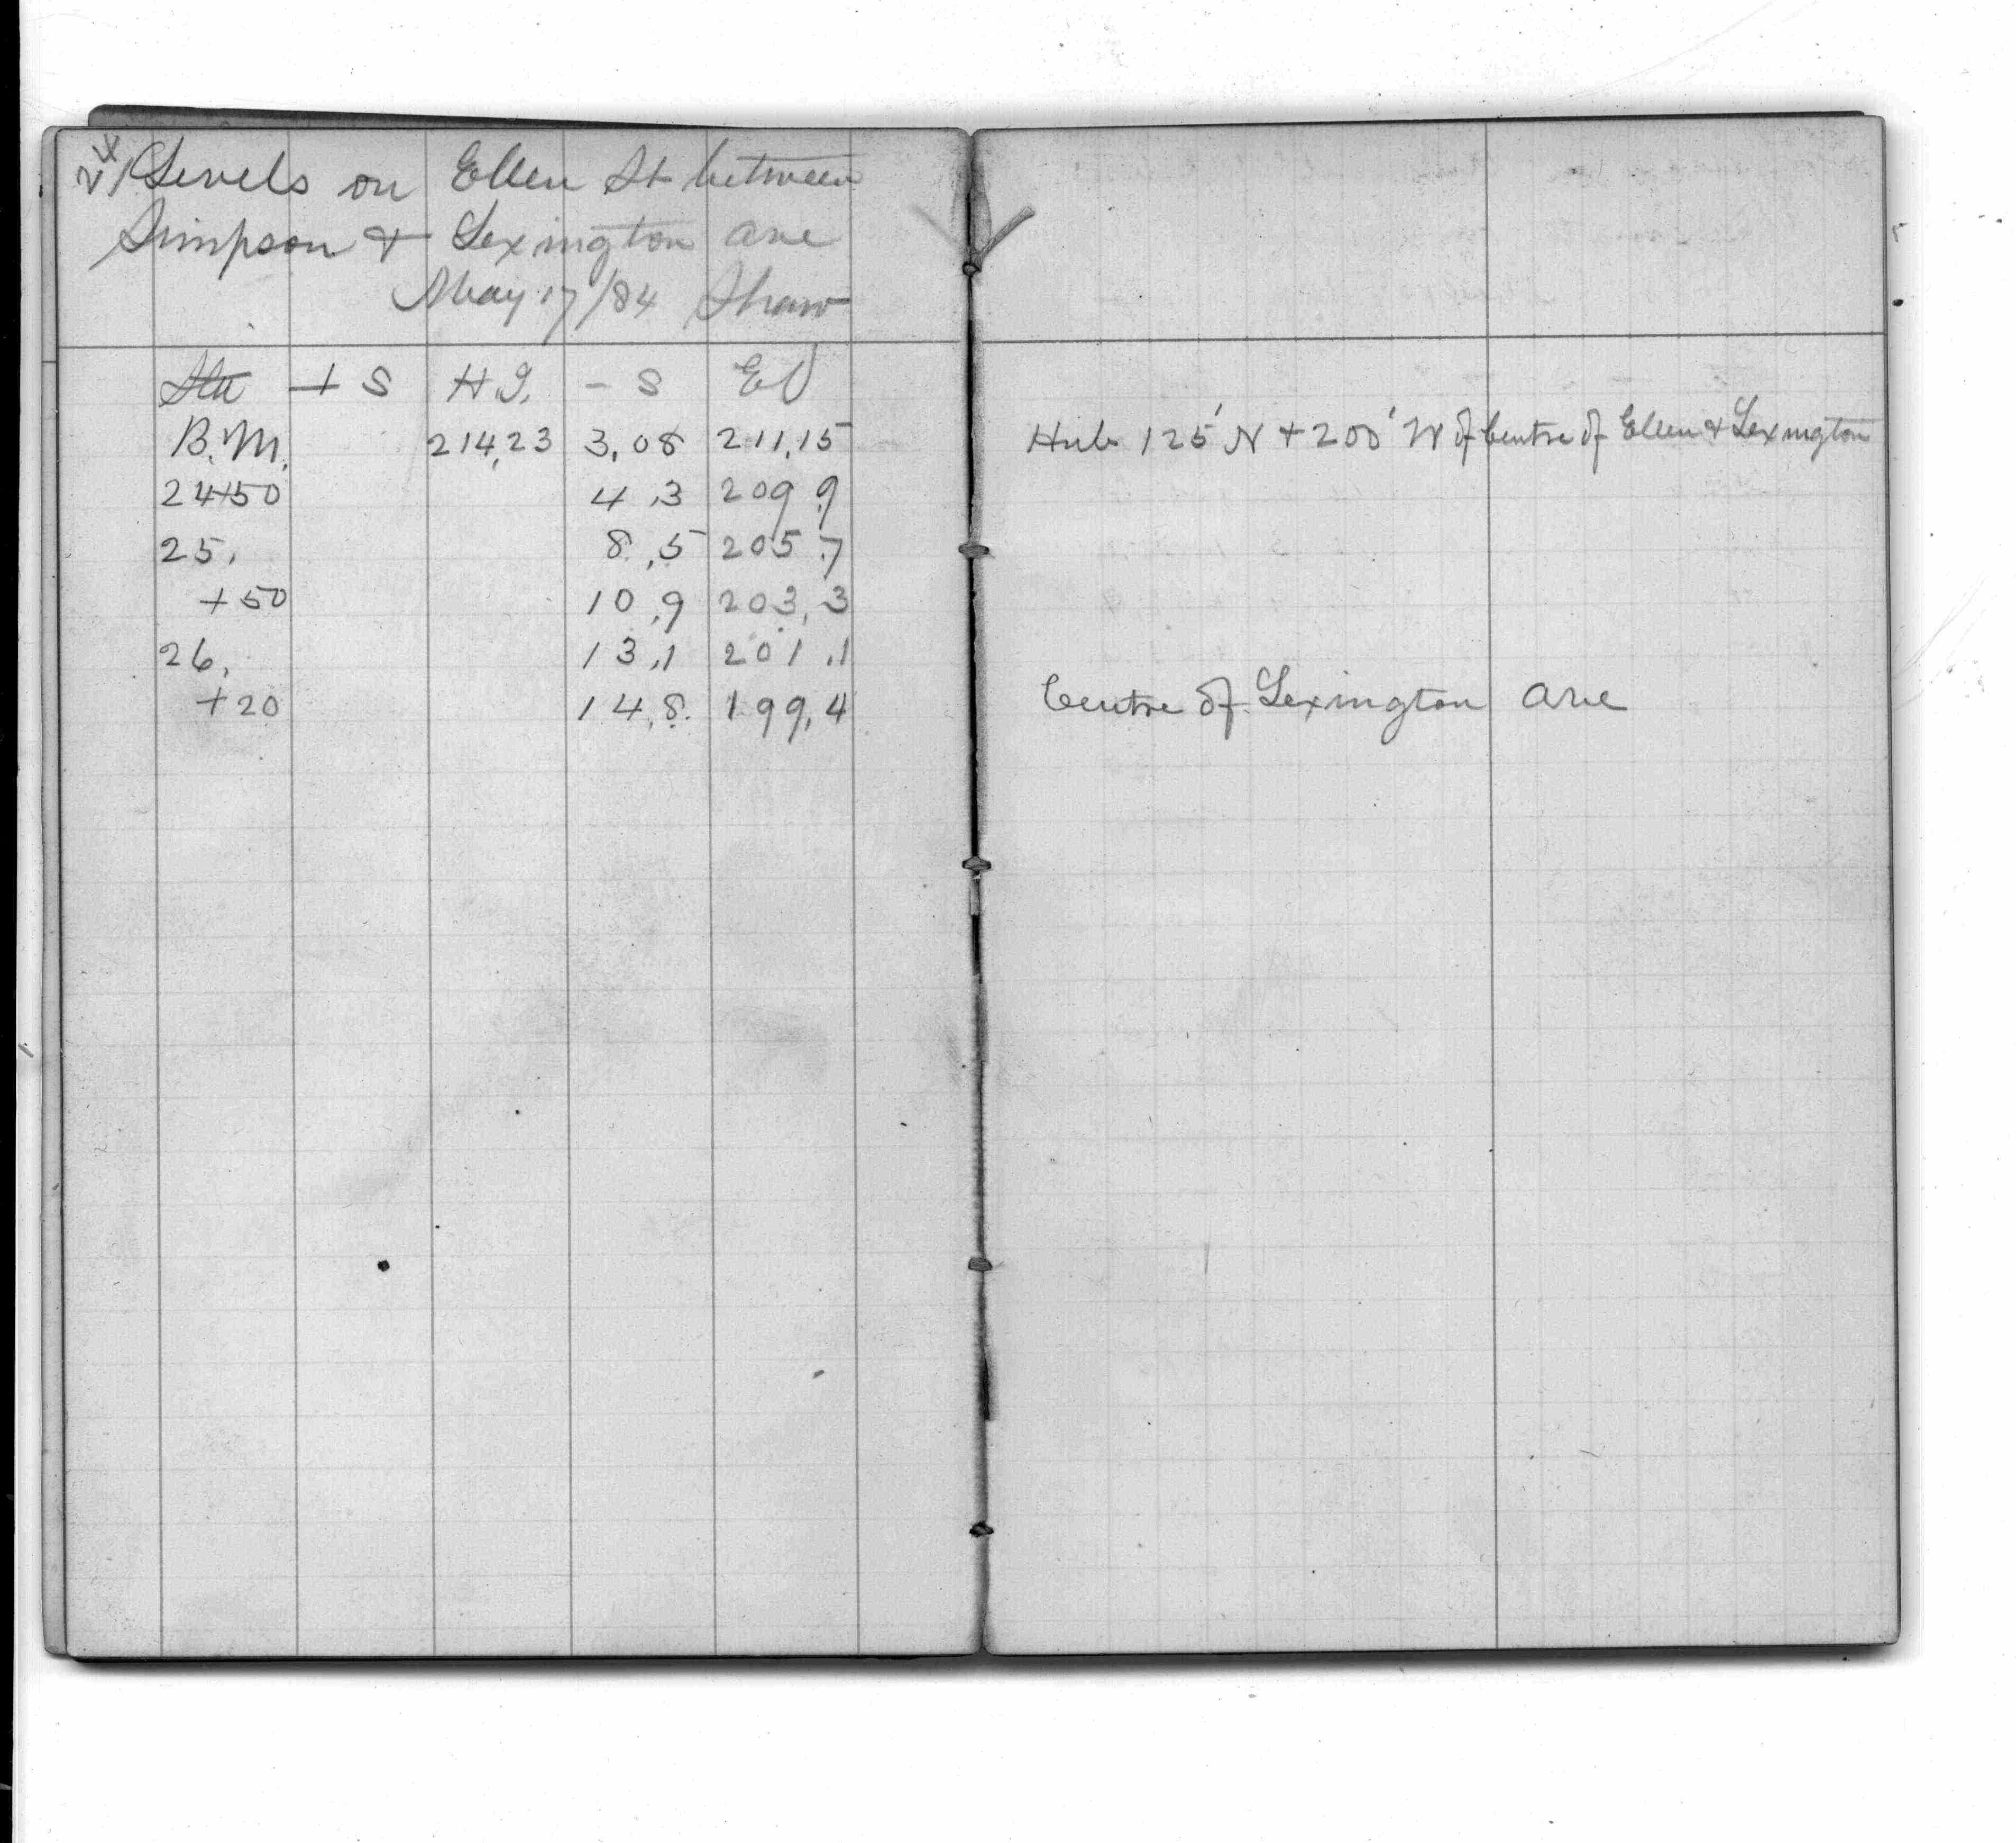 Levels on Ellen St between
Simpson & Lexington ave
May 17/84 Shaw
Sta + S H.I. - S El
B.M. 214,23 3,08 211,15 Hub 125' N + 200' W of Centre of Ellen & Lexington
24+50 4,3 209,9
25. 8,5 205,7
+50 10,9 203,3
26. 13,1 201,1
+20 14,8 199,4 Centre of Lexington Ave